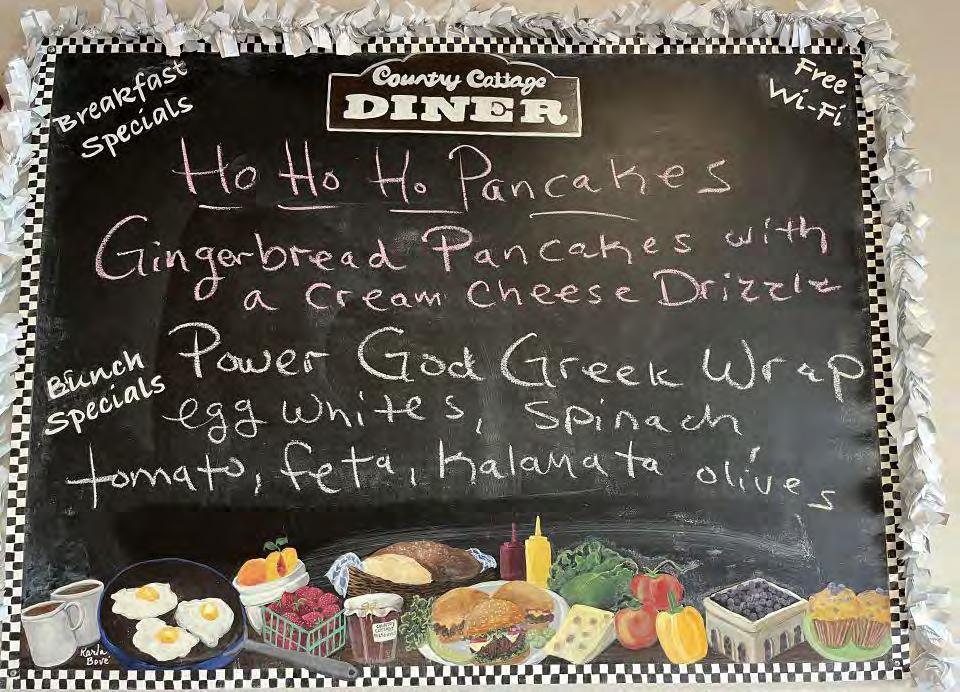 Breakfast
Specials
Country Cottage
DINER
Free
Wi-Fi
Ho Ho Ho Pancakes
Gingerbread Pancakes with
a Cream Cheese Drizzle
Bunch
Specials
Power God Greek Wrap
egg whites, spinach
tomato, feta, kalamata olives
Karla
Bove'